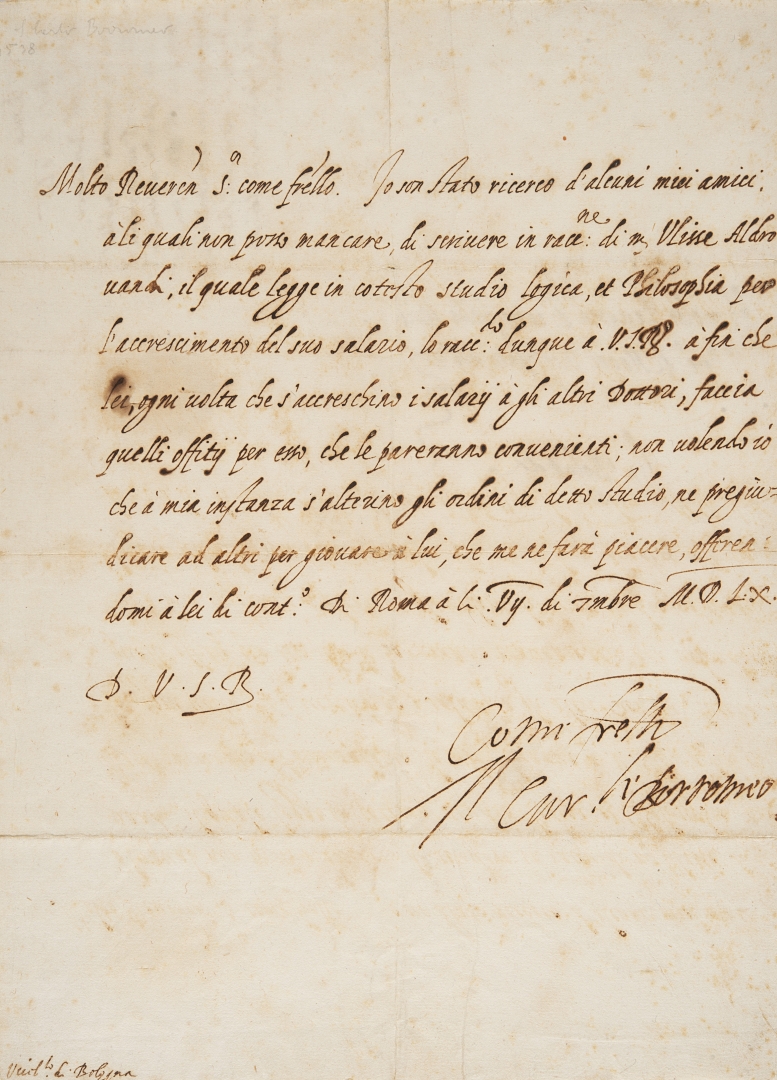 Molto Reueren S.r come frello. Io son stato ricerco d'alcuni miei amici,
à li quali non posso mancare, di scriuere in racc.ne: di m Vlisse Aldro
uandi, il quale legge in cotesto studio logica, et Philosophia per
l'accrescimento del suo salario, lo racc.do: dunque à .V.S.R. à fin che
lei, ogni uolta che s'accreschino i salarij à gli altri Dottori, faccia
quelli offitij per esso, che le pareranno conuenienti; non uolendo iò
che à mia instanza s'alterino gli ordini di detto studio, ne pregiu=
dicare ad altri per giouare à lui, che me ne farà piacere, offeren:
domi à lei di cont.o Di Roma à li .Vij. di 7mbre M.D.LX.
D. V. S. R.
Come frello
Il Car.le Borromeo
Vicel.to di Bologna